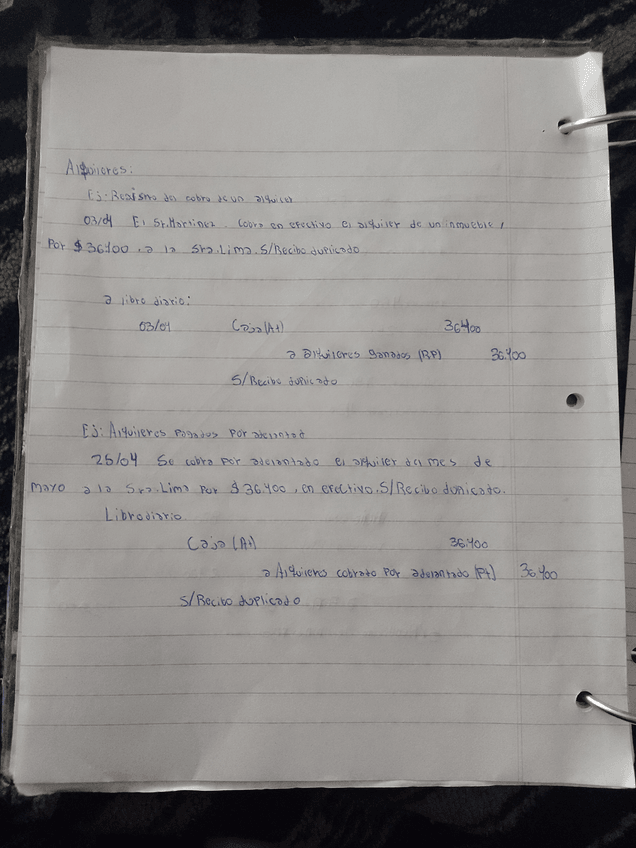 Alquileres:
Ej: Registro del cobro de un alquiler
03/04 El Sr. Martinez, cobra en efectivo el alquiler de un inmueble,
Por $36.400, a la Sra. Lima. S/Recibo duplicado
a libro diario:
03/04 Caja (A+) 36.400
a alquileres ganados (RP) 36.400
S/Recibo duplicado
Ej: Alquileres pagados por adelantad
25/04 Se cobra por adelantado el alquiler del mes de
mayo a la Sra. Lima por $36.400, en efectivo. S/Recibo duplicado.
Libro diario
Caja (A+) 36.400
a Alquileres cobrato por adelantado (P+) 36.400
S/Recibo duplicado